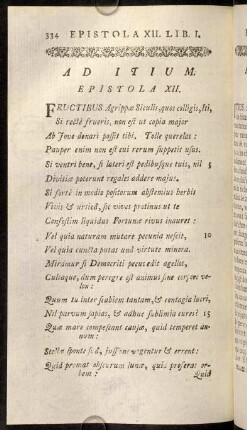 334 EPISTOLA XII. LIB. I.
AD ITIUM.
EPISTOLA XII.
FRUCTIBUS Agrippæ Siculis, quos colligis, Iti,
Si rectè frueris, non est ut copia major
Ab Jove donari possit tibi. Tolle querelas:
Pauper enim non est cui rerum suppetit usus.
Si ventri bene, si lateri est pedibusque tuis, nil 5
Divitiæ poterunt regales addere majus.
Si fortè in medio positorum abstemius herbis
Vivis & urticâ, sic vives protinus ut te
Confestim liquidus Fortunæ rivus inauret:
Vel quia naturam mutare pecunia nescit, 10
Vel quia cuncta putas unâ virtute minora.
Miramur si Democriti pecus edit agellos,
Cultaque, dum peregre est animus sine corpore ve-
lox:
Quum tu inter scabiem tantam, & contagia lucri,
Nil parvum sapias, & adhuc sublimia cures: 15
Quæ mare compescant causæ, quid temperet an-
num:
Stellæ sponte suâ, jussæne vagentur & errent:
Quid premat obscurum lunæ, quid proferat or-
bem:
Quid